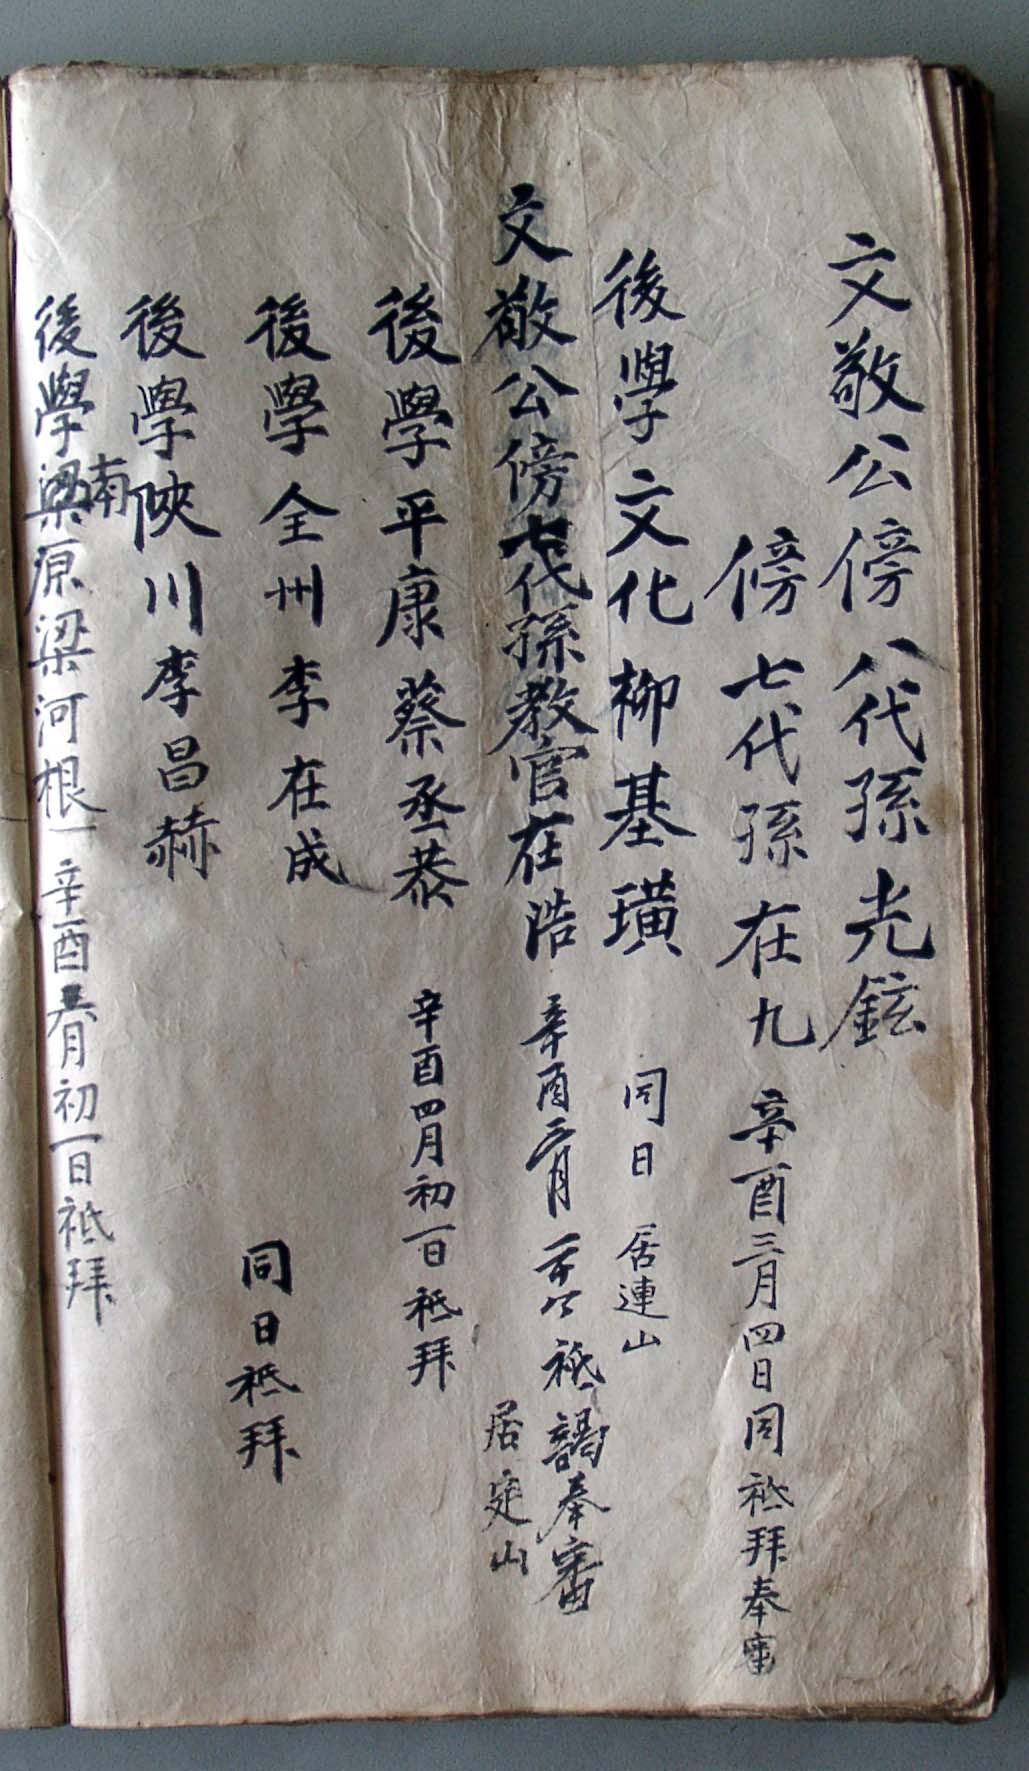 文敬公傍八代孫光鉉
傍七代孫在九 辛酉三月四日同祗拜奉審
後學文化柳基璜 同日 居連山
文敬公傍七代孫教官在浩 辛酉三月 祗謁奉審
居定山
後學平康蔡丞恭 辛酉四月初一日祗拜
後學全州李在成 同日祗拜
後學陜川李昌赫
後學梁原梁河根 辛酉 月初一日祗拜
南